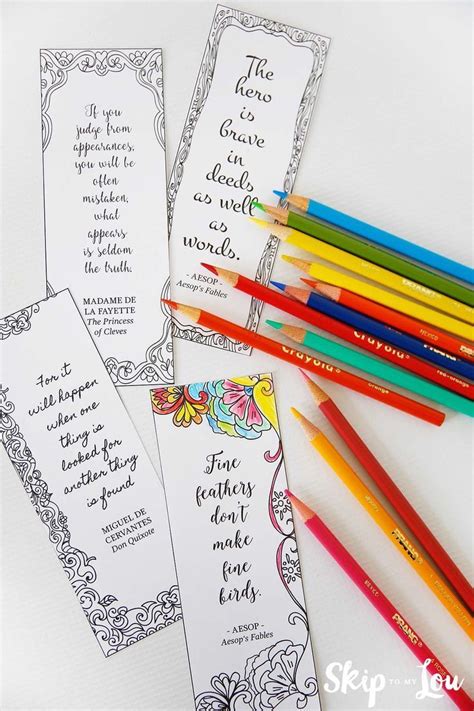 If you
judge from
appearances,
you will be
often
mistaken,
what
appears
is seldom
the truth.
MADAME DE
LA FAYETTE
The Princess
of Cleves
The
hero is
brave
in
deeds
as well
as
words.
- AESOP -
Aesop's Fables
For it
will happen
when one
thing is
looked for
another thing
is found
MIGUEL DE
CERVANTES
Don Quixote
Fine
feathers
don't
make
fine
birds.
- AESOP -
Aesop's Fables
crayola
crayola
orange
PRANG
PRANG
PRANG
SKIP TO MY LOU